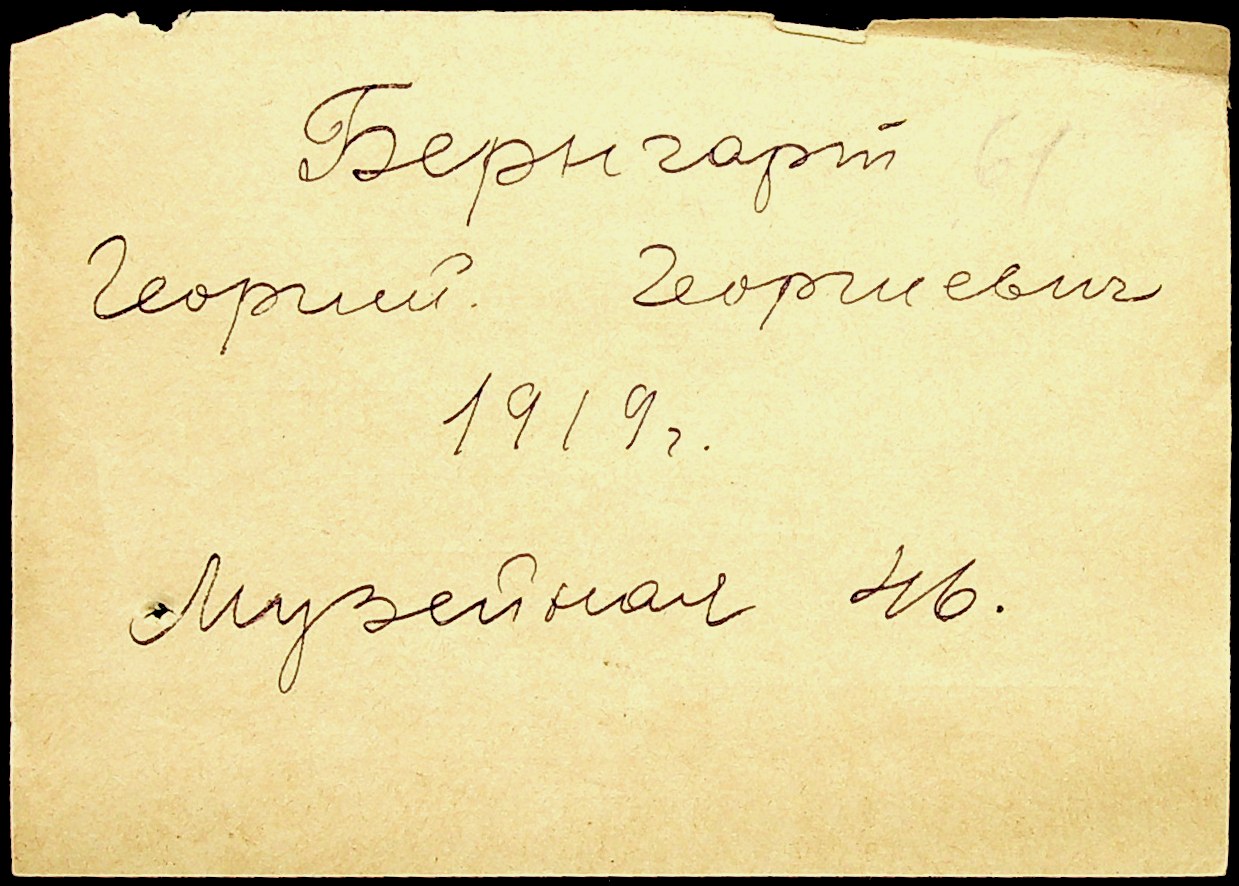 Бернгарт 61
Георгий Георгиевич
1919 г.
Музейная 46.